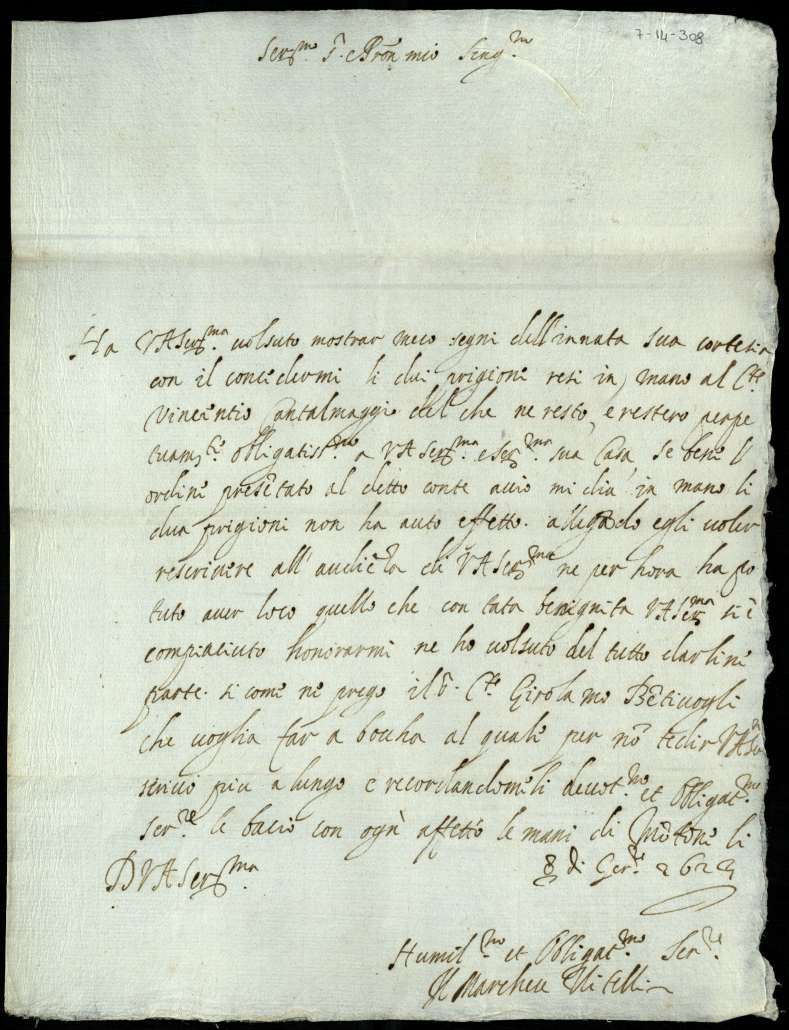 7-14-308
Ser.mo S.r e Pron mio Sing.re
Ha VA Ser.ma uolsuto mostrar meco segni dell'innata sua cortesia
con il concedermi li dui prigioni resi in mano al Cte.
Vincentio Antalmaggi del che ne resto, e restero perpe
tuam.te obbligatiss.mo a VA Ser.ma e Ser.ma sua Casa se bene l
ordine presētato al detto conte accio mi dia in mano li
dua prigioni non ha auto effetto. allegādo egli uoler
rescriuere all' audiēza di VA Ser.ma ne per hora ha po
tuto auer loco quello che con tāta benignita VA Ser.ma si è
compiaciuto honorarmi ne ho uolsuto del tutto darline
parte. si come ne prego il S. Cte. Girolamo Bētiuogli
che uoglia far a boccha al quale per nō tedir VA Ser
scriuo piu a lungo e recordandomeli deuot.mo et Obligat.mo
Ser.re le bacio con ogni affetto le mani di Mōtone li
8 di Gen.
D VA Ser.ma
Humil.mo et Obligat.mo Ser.re
Il Marchese Vitelli